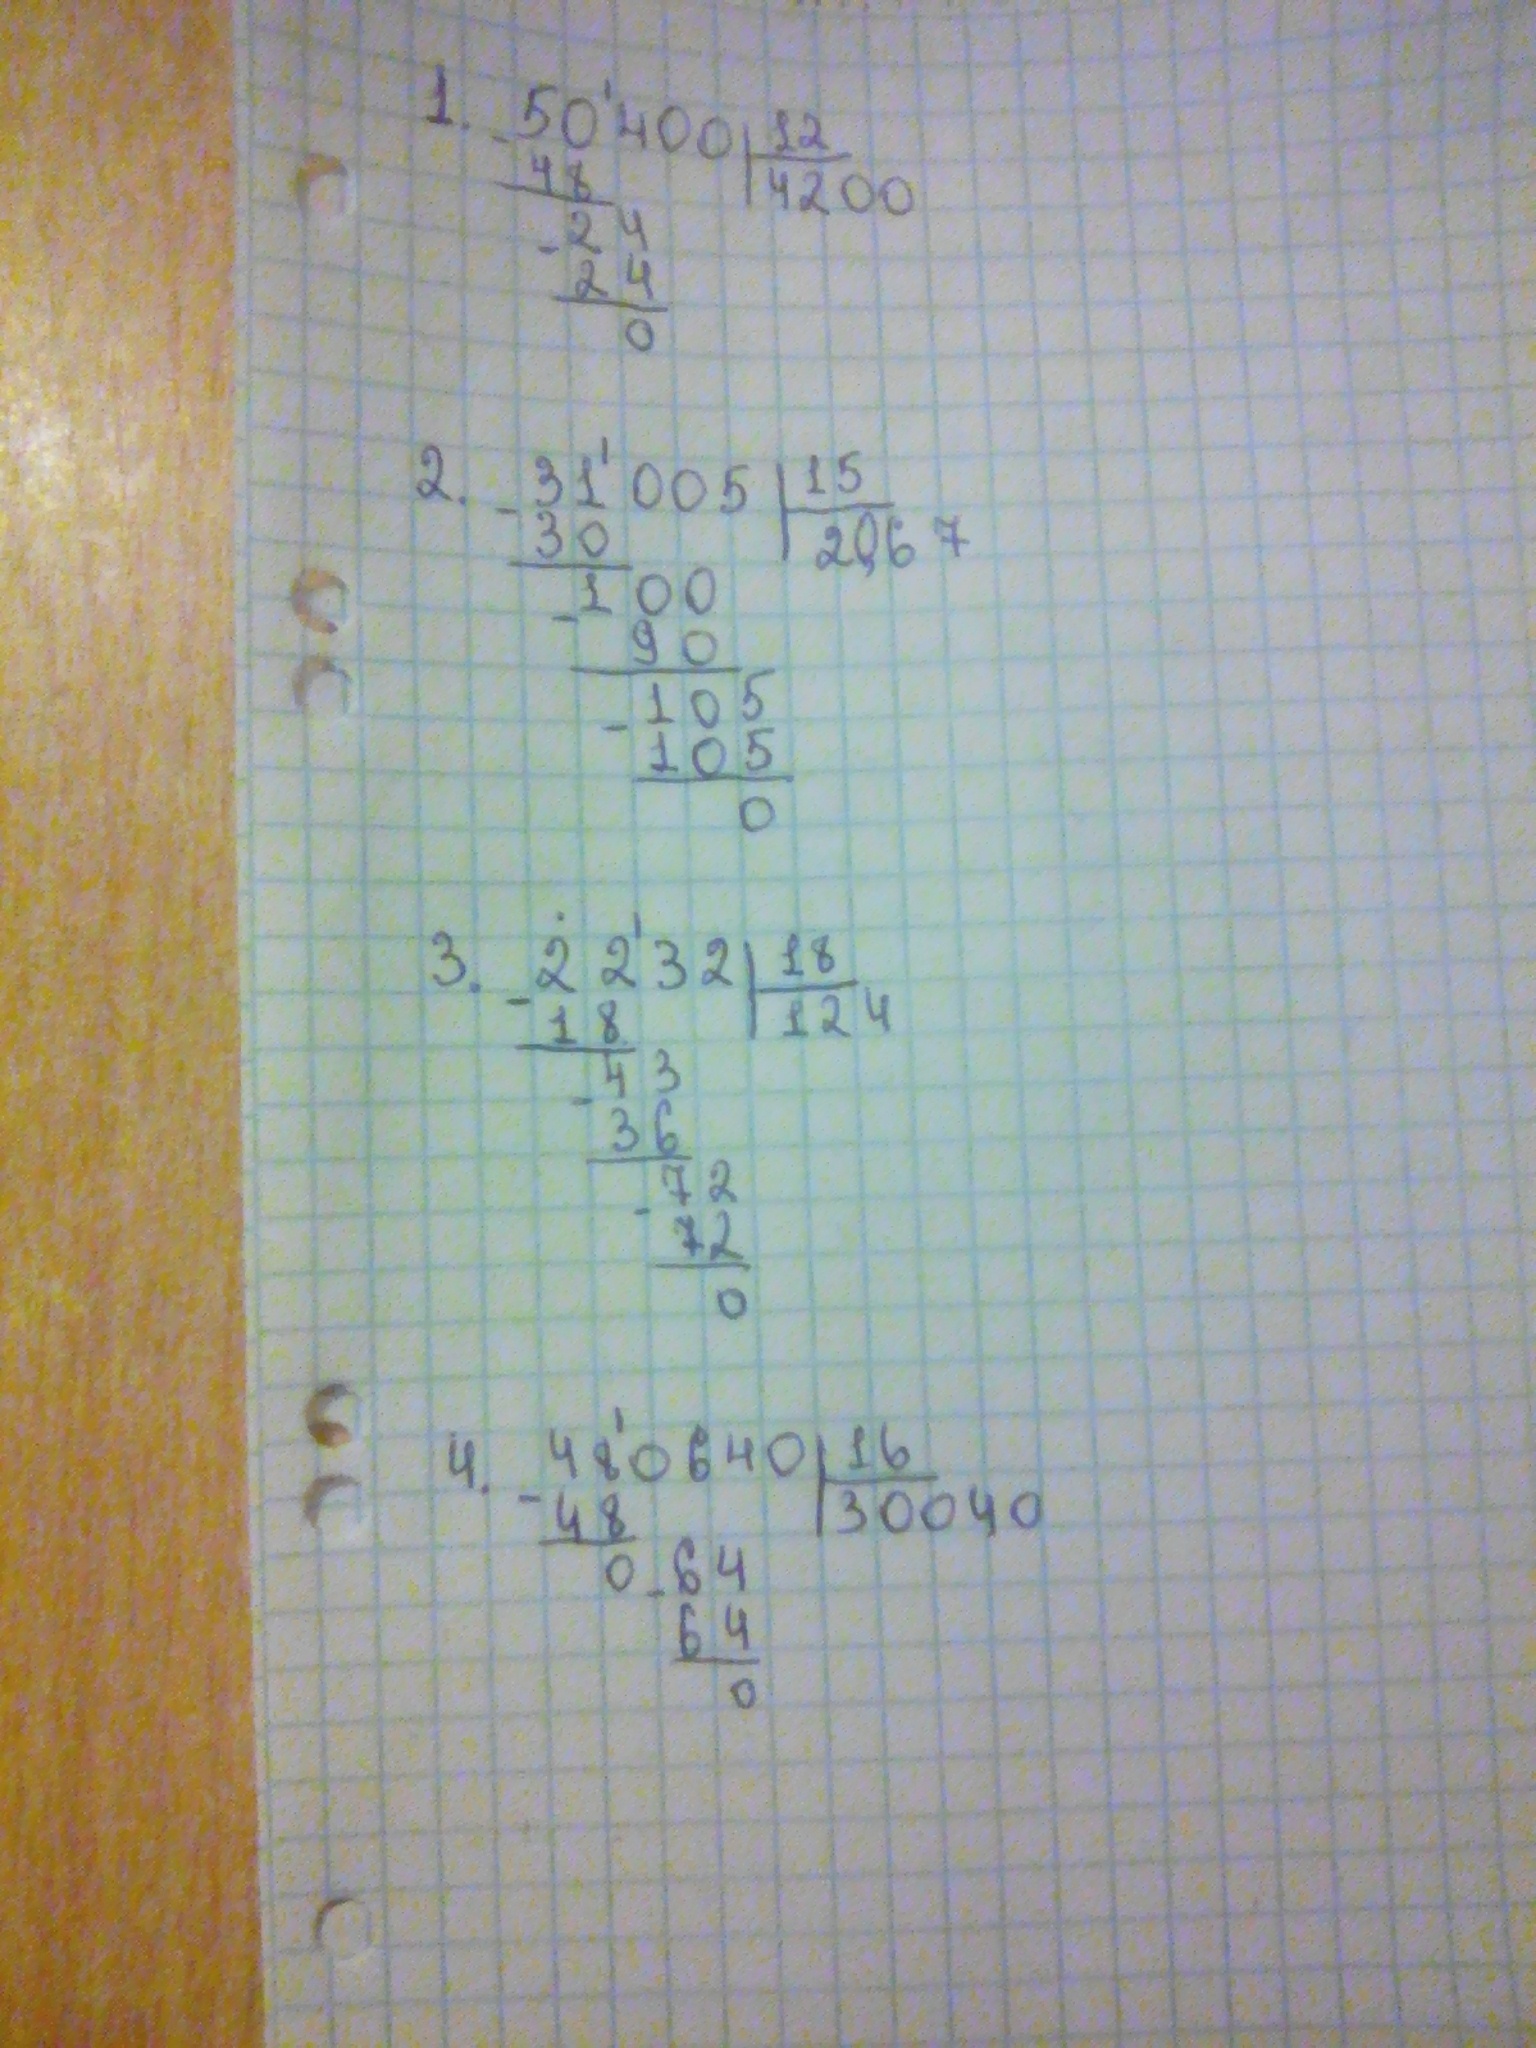 1. - 50'400 | 12
48 | 4200
- 24
24
0
2. - 31'005 | 15
30 | 2067
- 100
90
- 105
105
0
3. - 22'32 | 18
18 | 124
- 43
36
- 72
72
0
4. - 48'0640 | 16
48 | 30040
0 - 64
64
0